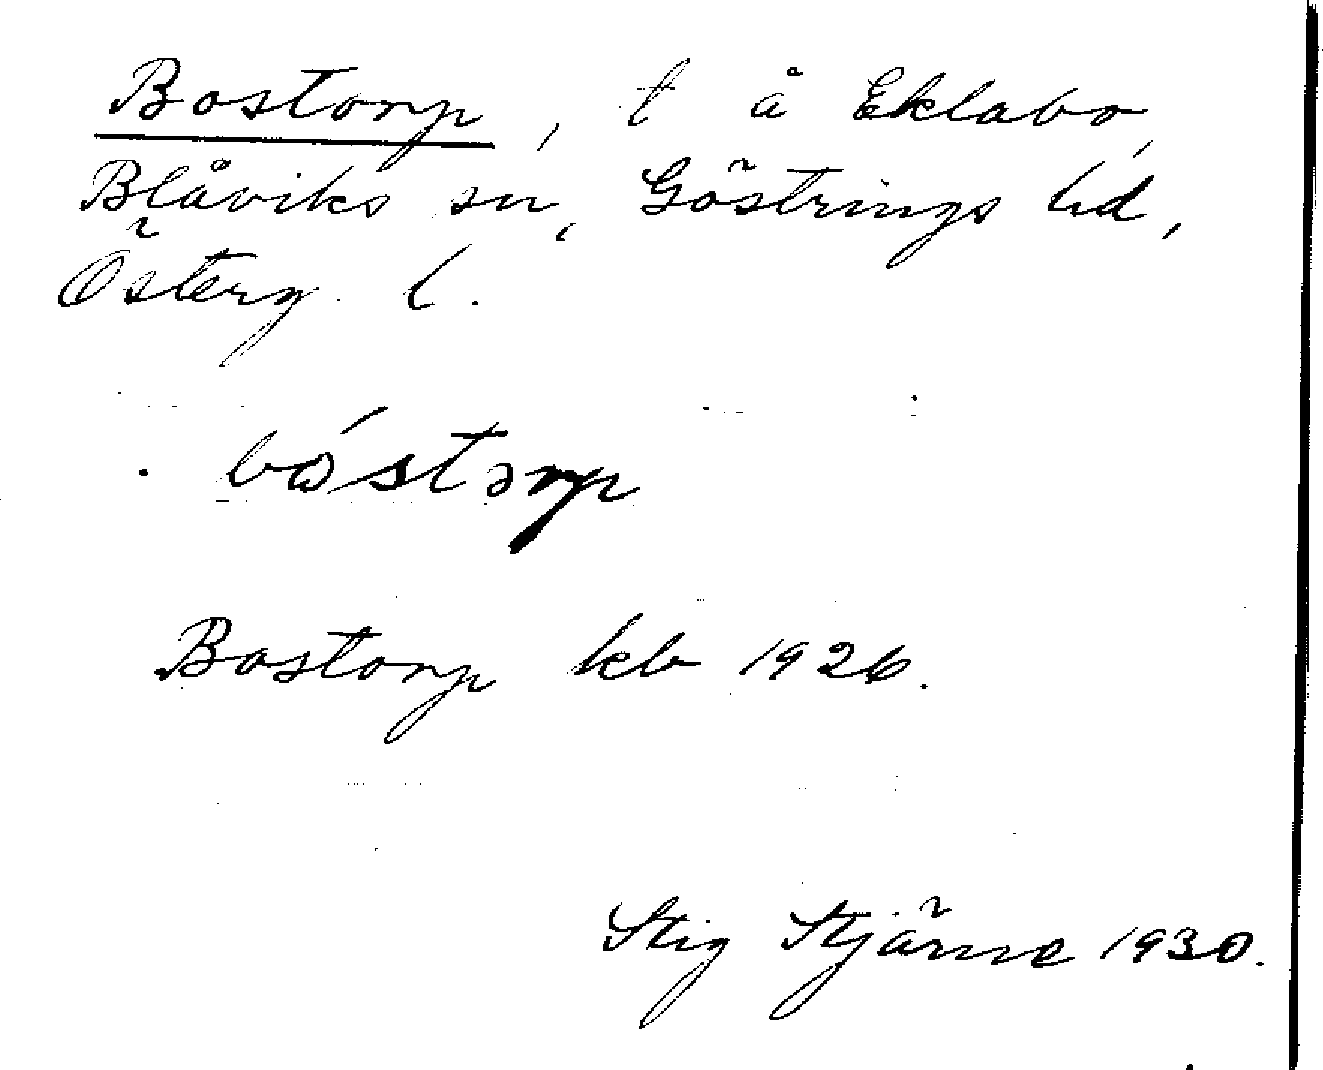 Bostorp, t å Eklabo,
Blåviks sn, Göstrings hd,
Österg. l.
bóstɔrp
Bostorp kb 1926.
Stig Stjärne 1930.